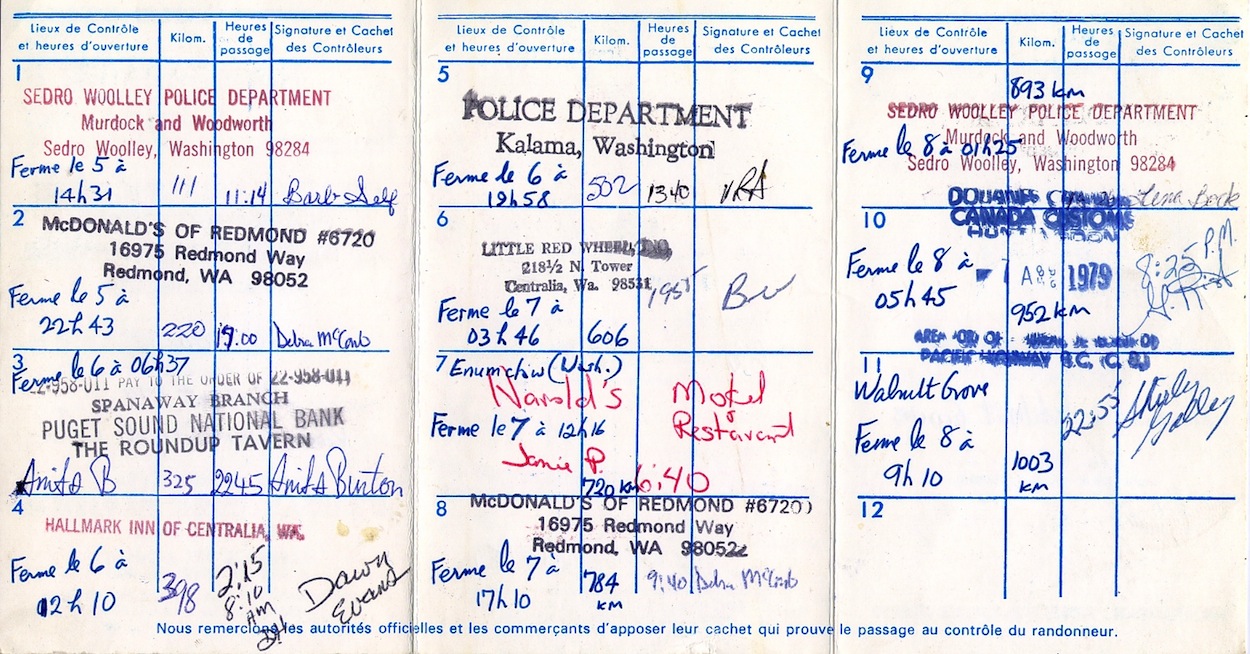 Lieux de Contrôle et heures d'ouverture
Kilom.
Heures de passage
Signature et Cachet des Contrôleurs
1
SEDRO WOOLLEY POLICE DEPARTMENT
Murdock and Woodworth
Sedro Woolley, Washington 98284
Ferme le 5 à
14h31
111
11:14
Barb Self
2
McDONALD'S OF REDMOND #6720
16975 Redmond Way
Redmond, WA 98052
Ferme le 5 à
22h43
220
17:00
Debra McComb
3
Ferme le 6 à 06h37
22-958-011 PAY TO THE ORDER OF 22-958-011
SPANAWAY BRANCH
PUGET SOUND NATIONAL BANK
THE ROUNDUP TAVERN
Anita B
325
2245
Anita Burton
4
HALLMARK INN OF CENTRALIA, WA.
Ferme le 6 à
12h10
398
2:15
8:10
AM
Dawn
Evans
Lieux de Contrôle et heures d'ouverture
Kilom.
Heures de passage
Signature et Cachet des Contrôleurs
5
POLICE DEPARTMENT
Kalama, Washington
Ferme le 6 à
19h58
502
1340
6
LITTLE RED WHEEL, INC.
218½ N. Tower
Centralia, Wa. 98531
Ferme le 7 à
03h46
606
195
7
Enumclaw (Wash.)
Harold's Motel
& Restaurant
Ferme le 7 à 12h16
Janie P.
720 km
6:40
8
McDONALD'S OF REDMOND #6720
16975 Redmond Way
Redmond, WA 98052
Ferme le 7 à
17h10
784
km
9:40
Debra McComb
Lieux de Contrôle et heures d'ouverture
Kilom.
Heures de passage
Signature et Cachet des Contrôleurs
9
893 km
SEDRO WOOLLEY POLICE DEPARTMENT
Murdock and Woodworth
Sedro Woolley, Washington 98284
Ferme le 8 à 01h25
Lena Bock
10
DOUANES CANADA
CANADA CUSTOMS
HUNTINGDON
Ferme le 8 à
05h45
7
1979
952 km
8:25 P.M.
PACIFIC HIGHWAY B.C.
11
Walnut Grove
Ferme le 8 à
9h10
1003
km
22:55
Shirley
12
Nous remercions les autorités officielles et les commerçants d'apposer leur cachet qui prouve le passage au contrôle du randonneur.